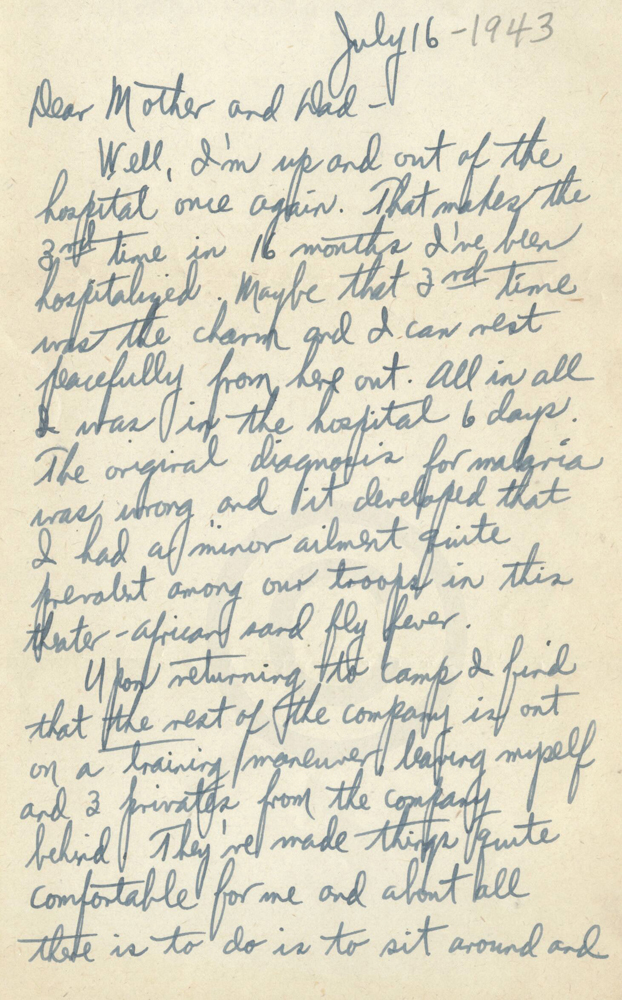 July 16 - 1943
Dear Mother and Dad -
Well, I'm up and out of the
hospital once again. That makes the
3rd time in 16 months I've been
hospitalized. Maybe that 3rd time
was the charm and I can rest
peacefully from here out. All in all
I was in the hospital 6 days.
The original diagnosis for malaria
was wrong and it developed that
I had a minor ailment quite
prevalent among our troops in this
theater - african sand fly fever.
Upon returning to camp I find
that the rest of the company is out
on a training maneuver leaving myself
and 3 privates from the company
behind. They've made things quite
comfortable for me and about all
there is to do is to sit around and